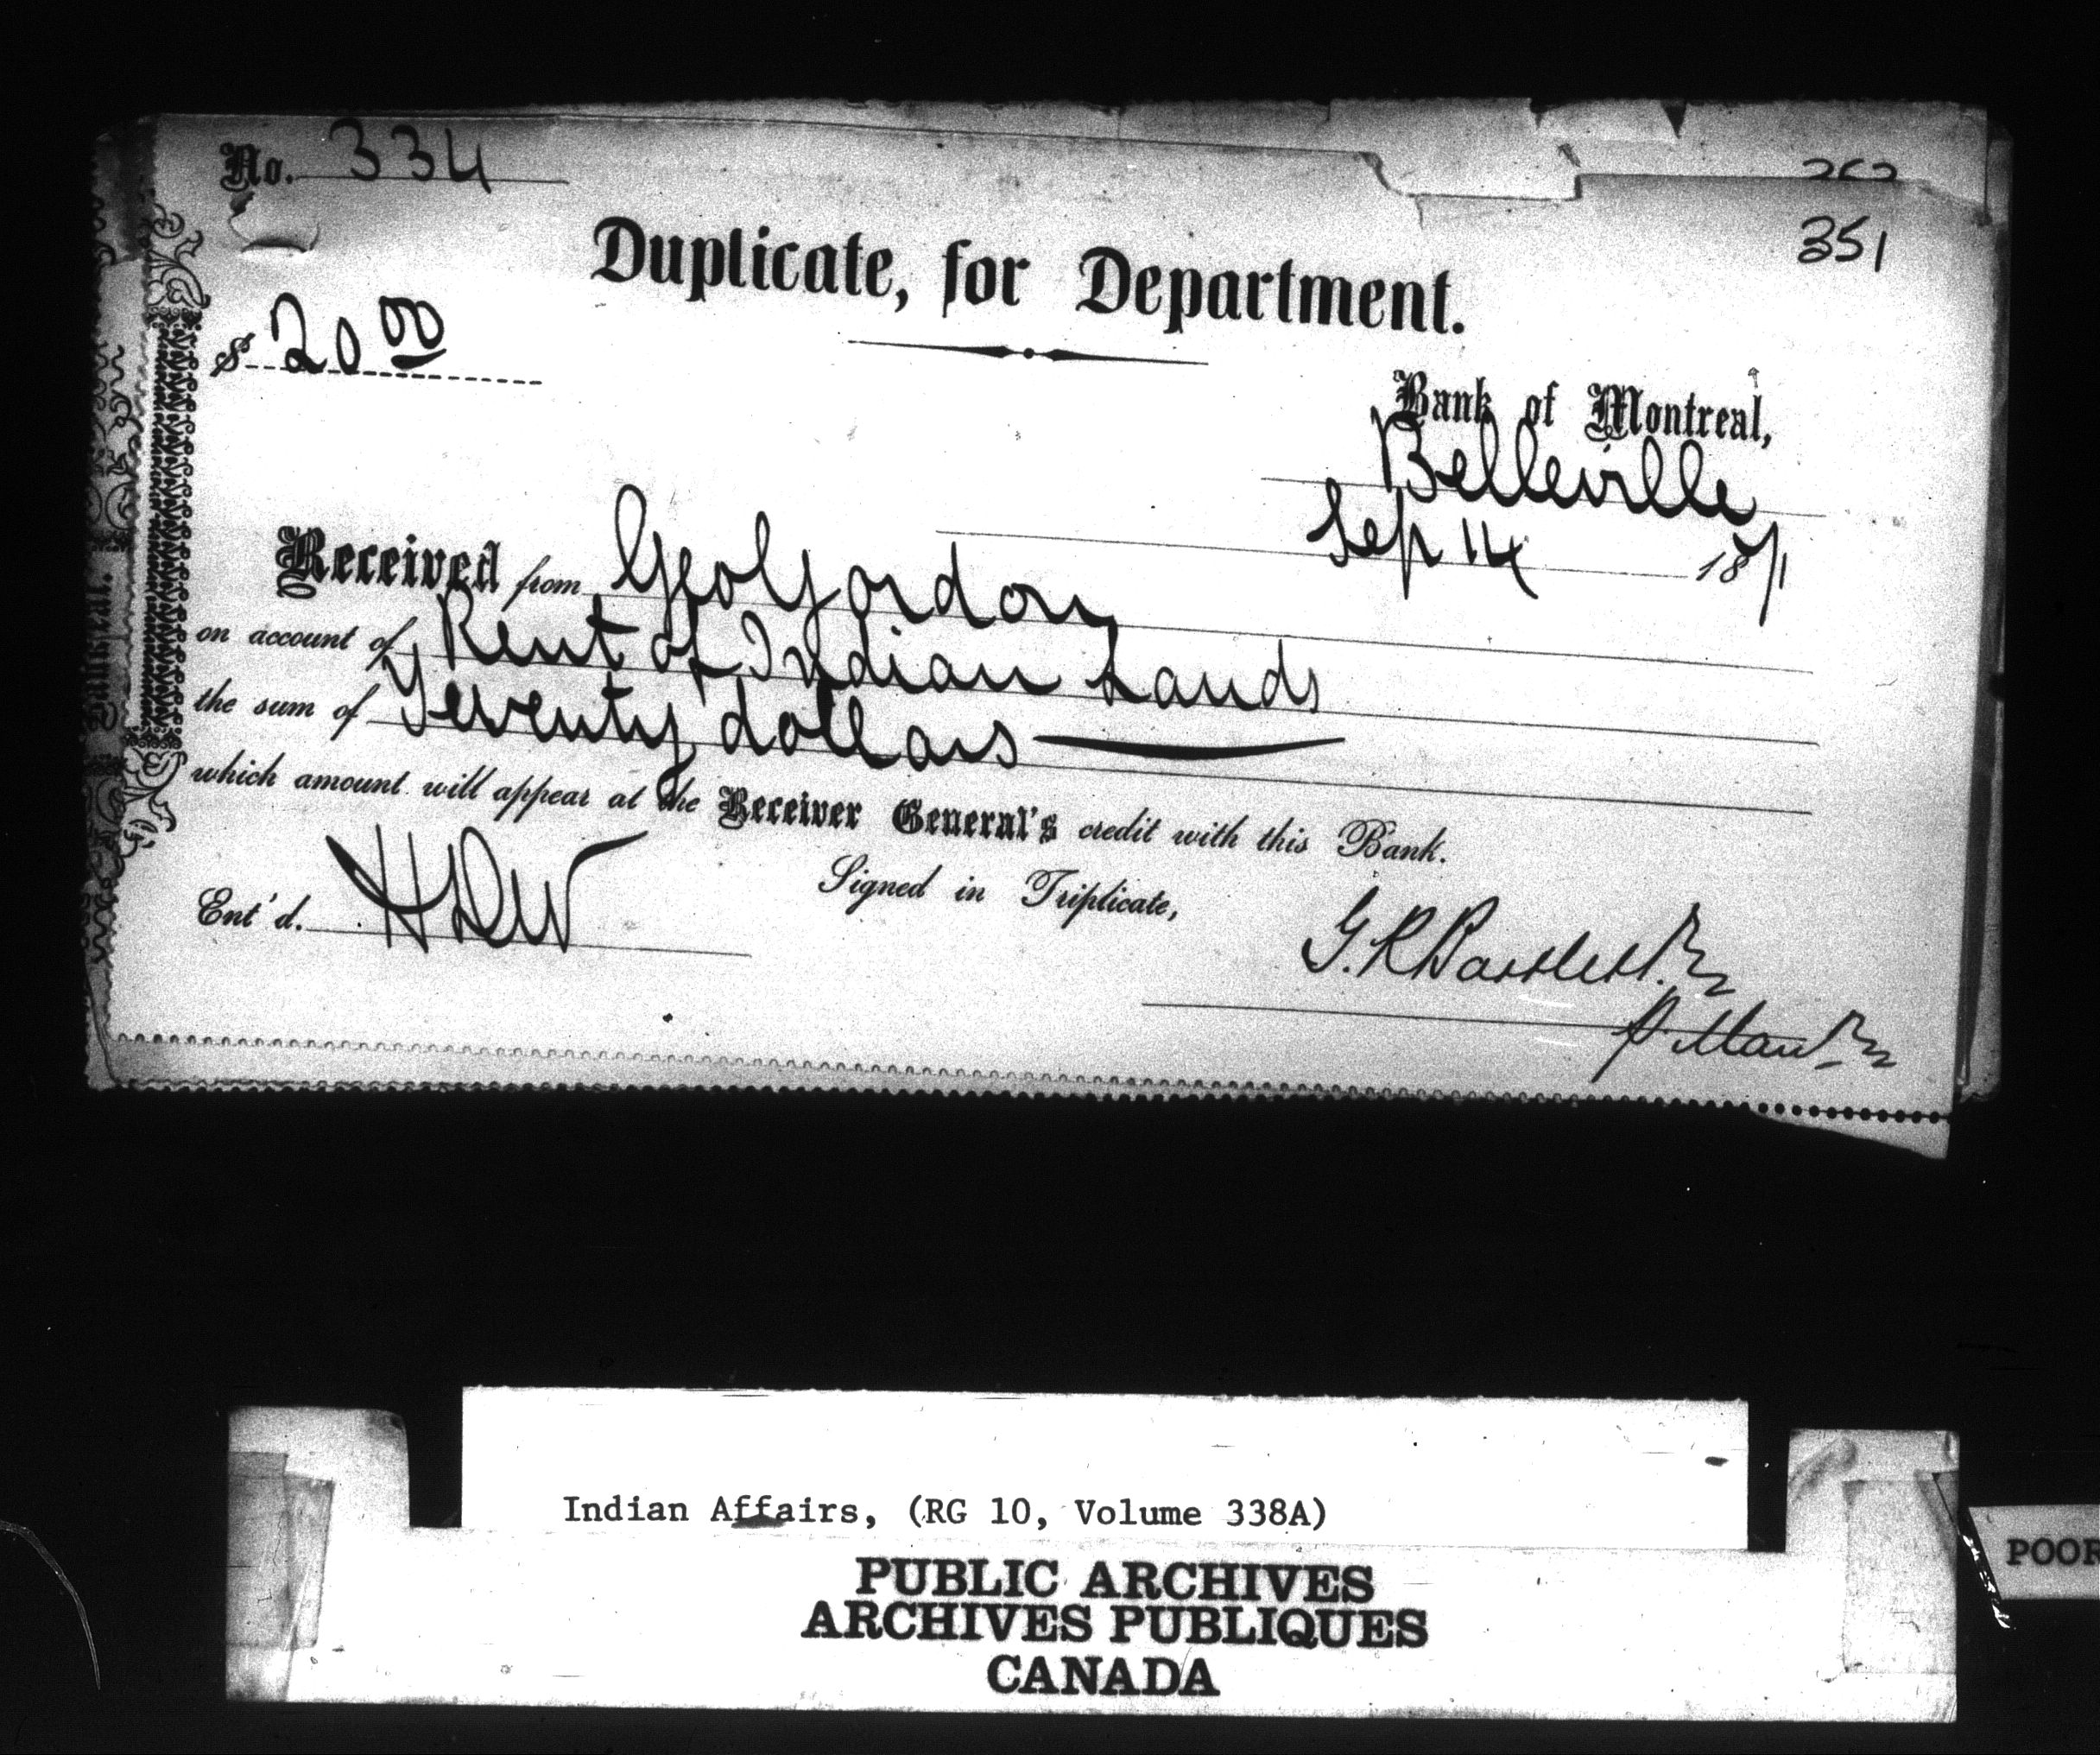 No. 334
351
Duplicate, for Department.
$ 20 00
Bank of Montreal,
Belleville
Sep 14 1871
Received from Geo Gordon
on account of Rent of Indian Lands
the sum of Twenty dollars
which amount will appear at the Receiver General's credit with this Bank.
Signed in Triplicate,
Ent'd. HDW
G. R. Bartlett
Indian Affairs, (RG 10, Volume 338A)
PUBLIC ARCHIVES
ARCHIVES PUBLIQUES
CANADA
POOR